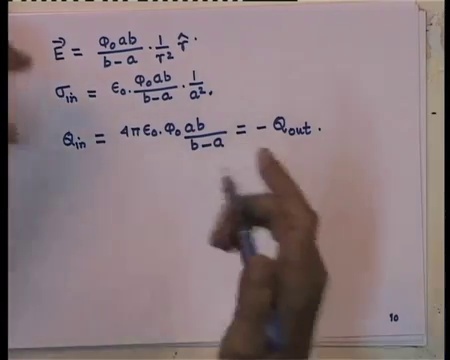 E⃗ = φ₀ab/(b-a) · 1/r² r̂.
σin = ε₀. φ₀ab/(b-a) · 1/a².
Qin = 4πε₀. φ₀ ab/(b-a) = - Qout.
10